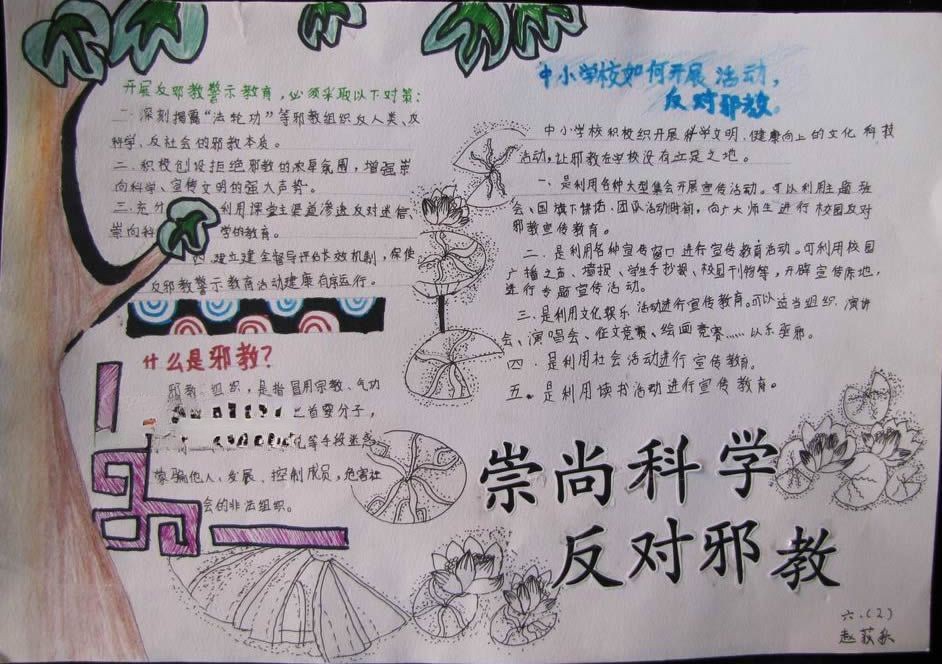 开展反邪教警示教育，必须采取以下对策：
一、深刻揭露“法轮功”等邪教组织反人类、反
科学、反社会的邪教本质。
二、积极创设拒绝邪教的浓厚氛围，增强崇
尚科学、宣传文明的强大声势。
三、充分 利用课堂主渠道渗透反对迷信
崇尚科 学的教育。
四、建立健全督导评估长效机制，保使
反邪教警示教育活动健康有序运行。
什么是邪教？
邪教组织，是指冒用宗教、气功
首要分子，
等手段迷惑
蒙骗他人，发展、控制成员，危害社
会的非法组织。
中小学校如何开展活动，
反对邪教。
中小学校积极组织开展科学文明、健康向上的文化科技
活动，让邪教在学校没有立足之地。
一、是利用各种大型集会开展宣传活动。可以利用主题班
会、国旗下讲话、团队活动时间，向广大师生进行校园反对
邪教宣传教育。
二、是利用各种宣传窗口进行宣传教育活动。可利用校园
广播之声、墙报、学生手抄报、校园刊物等，开辟宣传阵地，
进行专题宣传活动。
三、是利用文化娱乐活动进行宣传教育。可以适当组织演讲
会、演唱会、作文竞赛、绘画竞赛……以乐驱邪。
四、是利用社会活动进行宣传教育。
五、是利用读书活动进行宣传教育。
崇尚科学
反对邪教
六.(2)
赵荻秋